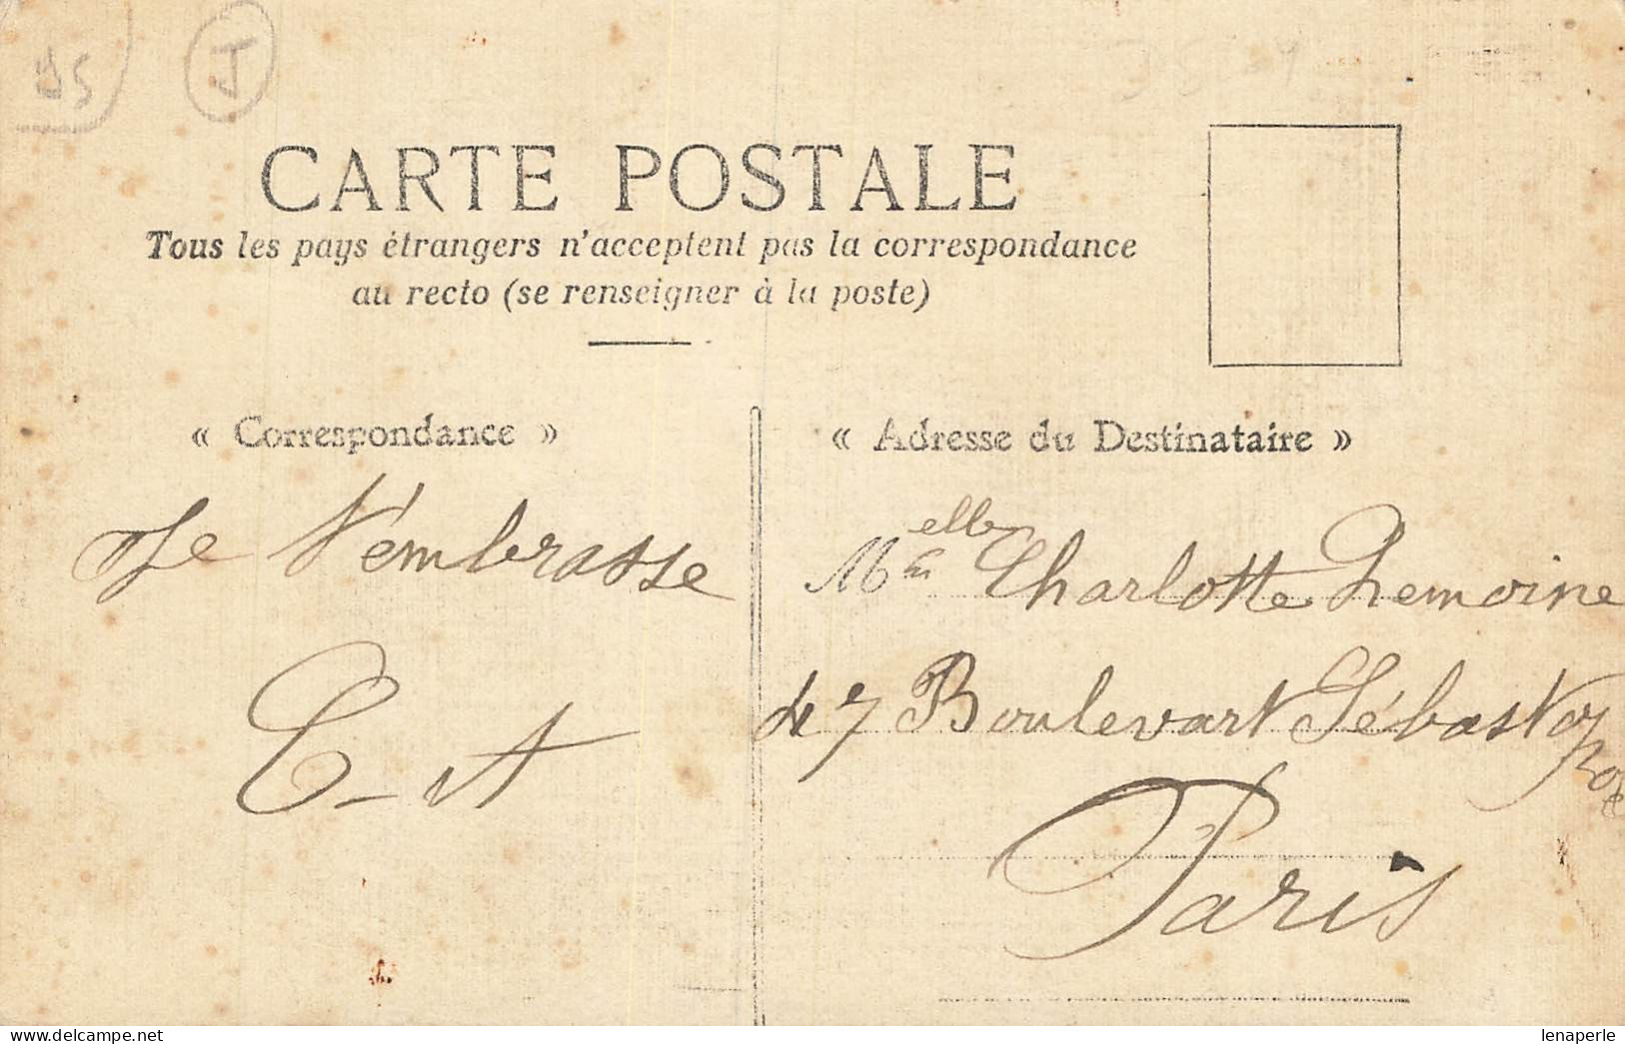 J
CARTE POSTALE
Tous les pays étrangers n'acceptent pas la correspondance
au recto (se renseigner à la poste)
« Correspondance »
Je t'embrasse
E-A
« Adresse du Destinataire »
Melle Charlotte Lemoine
47 Boulevart Sébastopol
Paris
delcampe.net
lenaperle